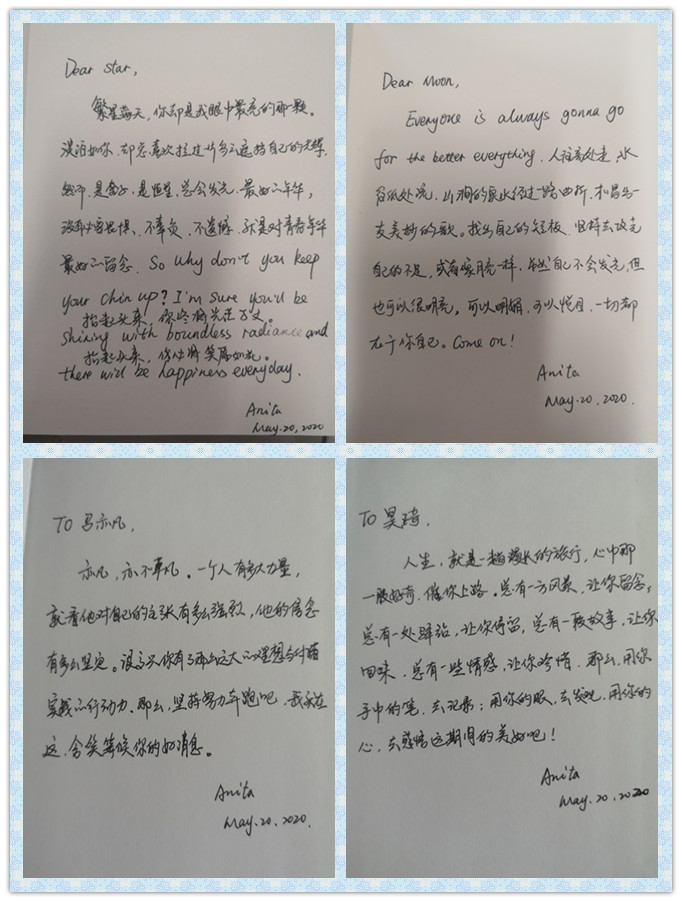 Dear Star,
繁星满天，你却是我眼中最亮的那一颗。
淡泊如你，却总喜欢拉过片乌云遮挡自己的光辉，
然而，是金子，是恒星，总会发光。最好的年华，
没有畏惧、不辜负、不遗憾，就是对青春年华
最好的留念。So why don't you keep
your chin up? I'm sure you'd be
抬起头来，你终将光芒万丈。
shining with boundless radiance and
抬起头来，你也将笑靥如花。
there will be happiness everyday.
Anita
May.20,2020
Dear Moon,
Everyone is always gonna go
for the better everything. 人往高处走，水
往低处流，山涧的泉水经过一路曲折，才唱出一
支美妙的歌。找出自己的短板，坚持去攻克
自己的不足，或有像月亮一样，虽然自己不会发光，但
也可以很明亮，可以明媚，可以悦目，一切都
在于你自己。Come on!
Anita
May.20.2020.
To 马亦凡，
亦凡，亦不平凡。一个人有多大力量，
就看他对自己的主张有多么强烈，他的信念
有多么坚定。很高兴你有了那么远大的理想与付诸
实践的行动力。那么，坚持努力奔跑吧，我会在
这，含笑等候你的好消息。
Anita
May.20.2020.
To 昊琦，
人生，就是一趟漫长的旅行，心中那
一股好奇，催你上路。总有一方风景，让你留念；
总有一处驿站，让你停留，总有一段故事，让你
回味，总有一些情感，让你珍惜。那么，用你
手中的笔，去记录；用你的眼，去发现，用你的
心，去感悟这期间的美好吧！
Anita
May.20.2020